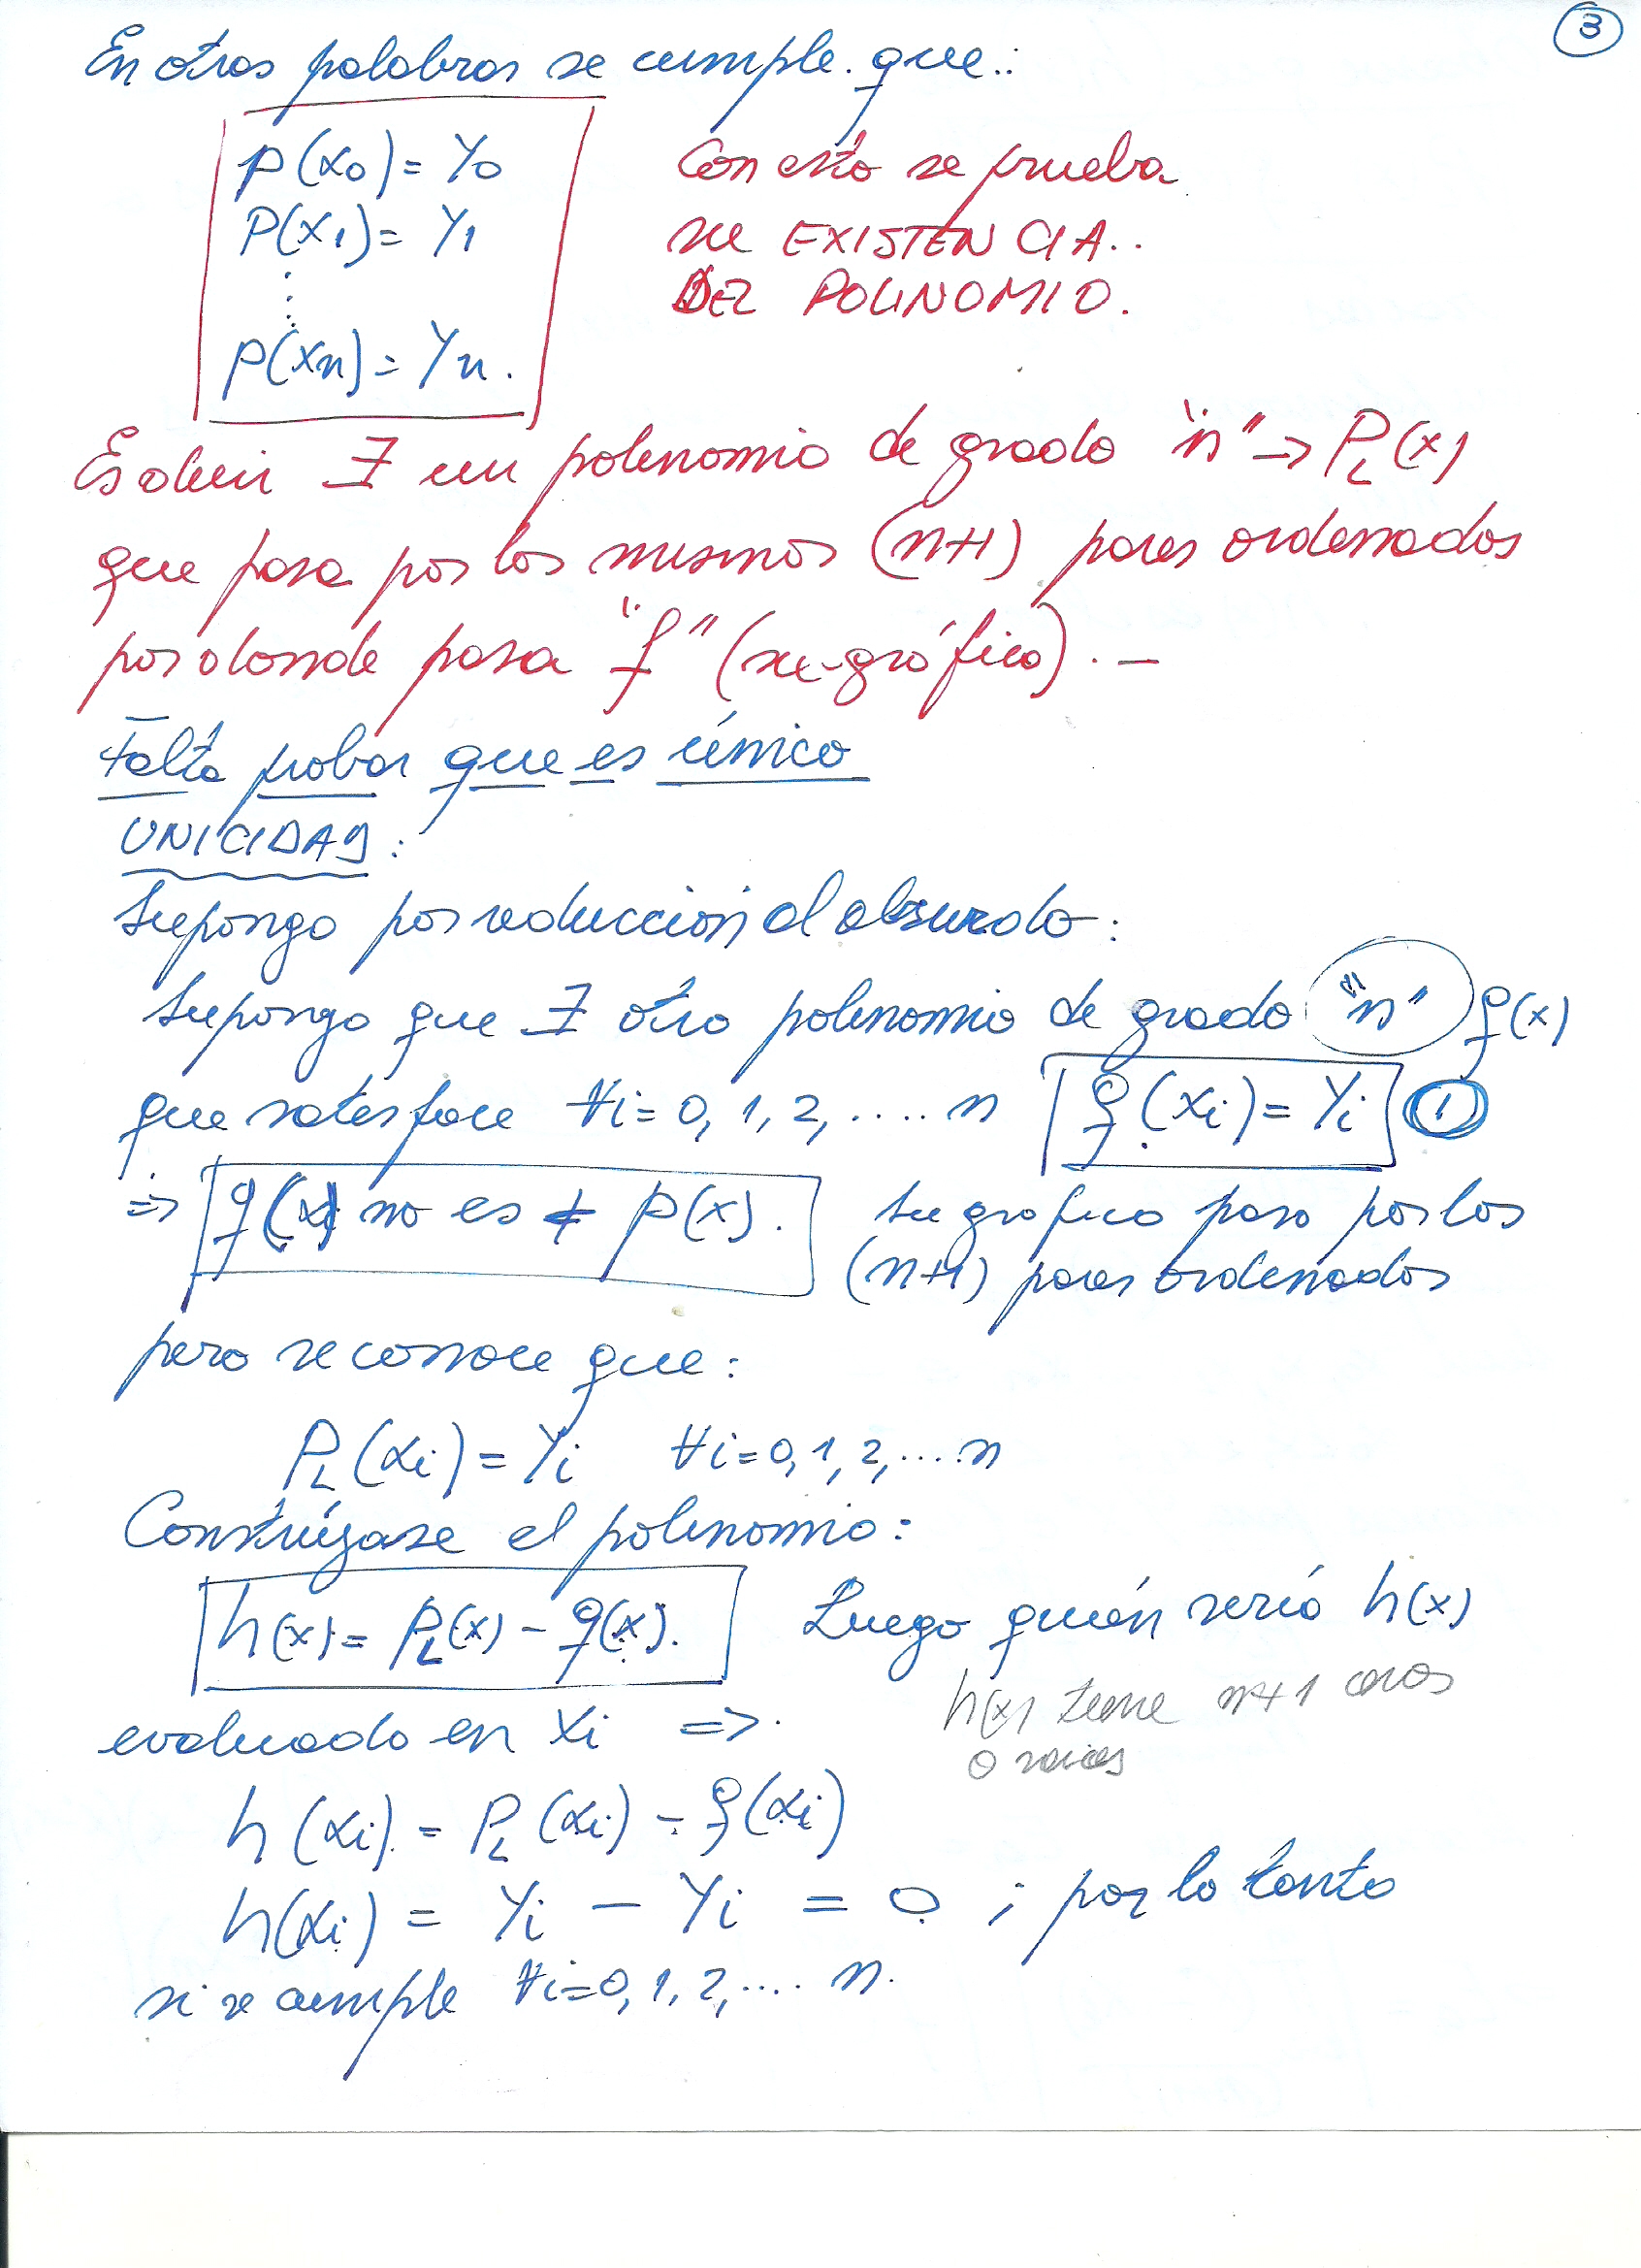 3
En otras palabras se cumple que:
p(x0) = Y0
P(x1) = Y1
⋮
p(xn) = Yn.
Con esto se prueba
su EXISTENCIA..
DEL POLINOMIO.
Es decir ∃ un polinomio de grado "n" → PL(x)
que pasa por los mismos (n+1) pares ordenados
por donde pasa "f" (su gráfico). —
Falta probar que es único
UNICIDAD:
Supongo por reducción al absurdo:
Supongo que ∃ otro polinomio de grado "n" q(x)
que satisface ∀i = 0, 1, 2, .... n q(xi) = Yi 1
⇒ q(x) no es ≠ p(x). Su grafico pasa por los
(n+1) pares ordenados
pero se conoce que:
PL(xi) = Yi ∀i = 0, 1, 2, .... n
Constrúyase el polinomio:
h(x) = PL(x) - q(x). Luego quién sería h(x)
h(x) tiene n+1 ceros
o raices
evaluado en xi ⇒
h(xi) = PL(xi) - q(xi)
h(xi) = Yi - Yi = 0 ; por lo tanto
si se cumple ∀i = 0, 1, 2, .... n.